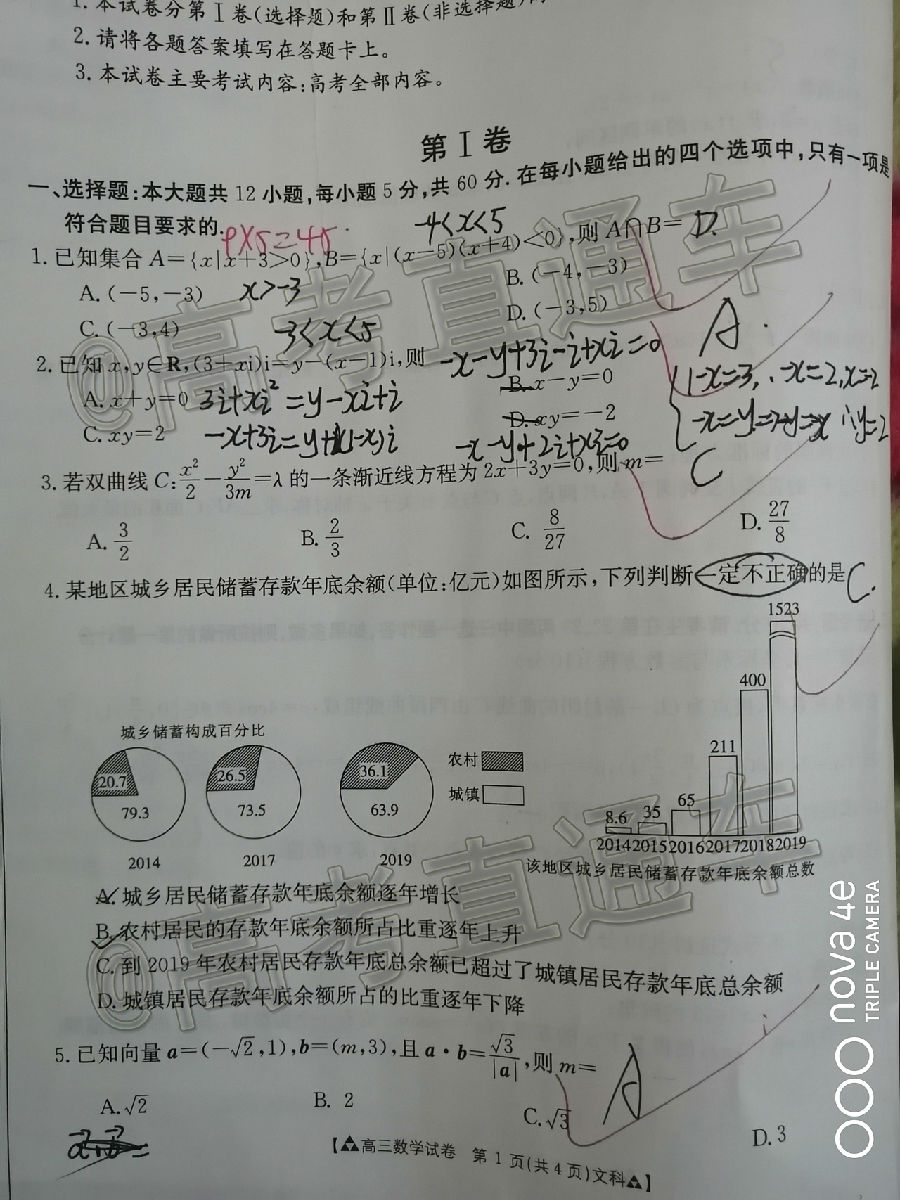 1. 本试卷分第Ⅰ卷(选择题)和第Ⅱ卷(非选择题)
2. 请将各题答案填写在答题卡上。
3. 本试卷主要考试内容:高考全部内容。
第Ⅰ卷
一、选择题:本大题共12小题,每小题5分,共60分. 在每小题给出的四个选项中,只有一项是
符合题目要求的.
9×5=45
-4<x<5
1. 已知集合 A={x|x+3>0},B={x|(x-5)(x+4)<0},则 A∩B= D.
A. (-5,-3)
x>-3
B. (-4,-3)
C. (-3,4)
-3<x<5
D. (-3,5)
A.
2. 已知 x,y∈R,(3+xi)i=y-(x-1)i,则
-x-y+3i-i+xi=0
A. x+y=0
3i+xi²=y-xi+i
B. x-y=0
1-x=3, ∴-x=2,x=2
C. xy=2
-x+3i=y+(1-x)i
D. xy=-2
-x-y+2i+xi=0
-x=y⇒-y=x ∴y=2
3. 若双曲线 C: x²/2 - y²/3m =λ 的一条渐近线方程为 2x+3y=0,则 m= C
A. 3/2
B. 2/3
C. 8/27
D. 27/8
4. 某地区城乡居民储蓄存款年底余额(单位:亿元)如图所示,下列判断一定不正确的是 C.
城乡储蓄构成百分比
20.7
79.3
2014
26.5
73.5
2017
36.1
63.9
2019
农村
城镇
8.6
35
65
211
400
1523
2014 2015 2016 2017 2018 2019
该地区城乡居民储蓄存款年底余额总数
A. 城乡居民储蓄存款年底余额逐年增长
B. 农村居民的存款年底余额所占比重逐年上升
C. 到 2019 年农村居民存款年底总余额已超过了城镇居民存款年底总余额
D. 城镇居民存款年底余额所占的比重逐年下降
5. 已知向量 a=(-√2,1),b=(m,3),且 a·b=√3/|a|,则 m= A
A. √2
B. 2
C. √3
D. 3
【高三数学试卷 第1页(共4页)文科】
@高考直通车
@高考直通车
nova 4e
TRIPLE CAMERA